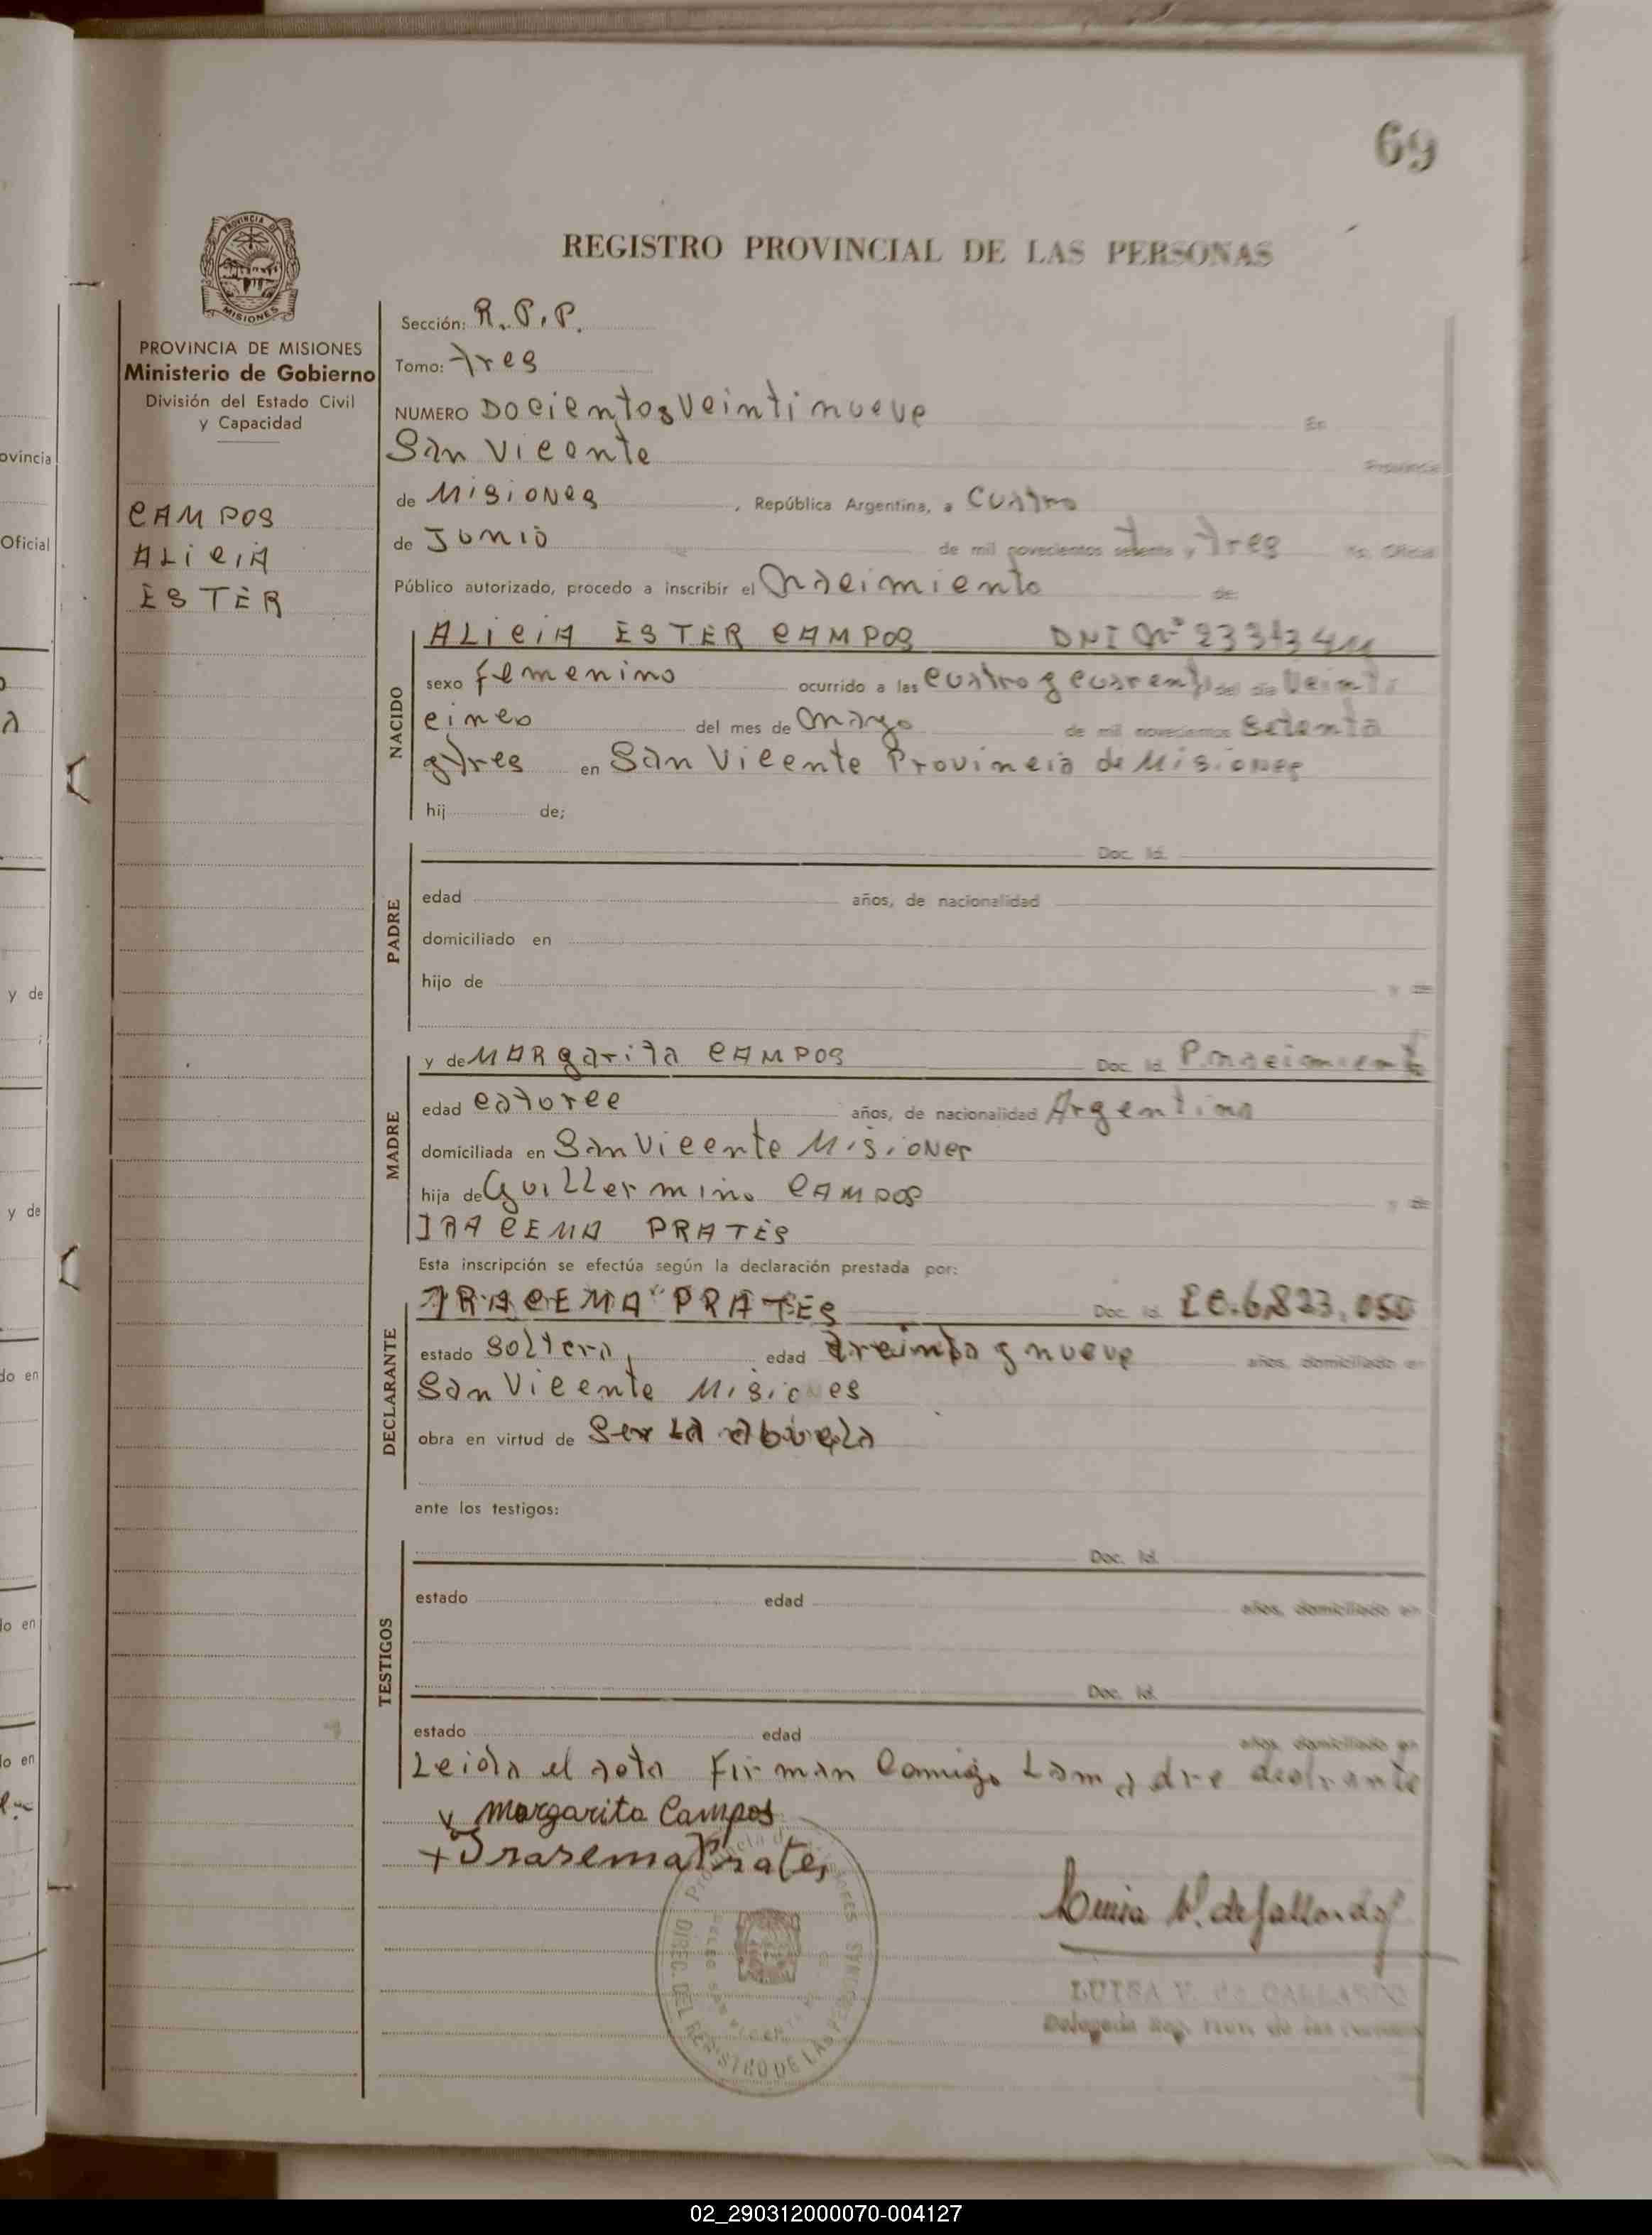 69
REGISTRO PROVINCIAL DE LAS PERSONAS
PROVINCIA DE MISIONES
Ministerio de Gobierno
División del Estado Civil
y Capacidad
CAMPOS
ALICIA
ESTER
Sección: R.P.P.
Tomo: tres
NUMERO Docientos Veintinueve En
San Vicente Provincia
de Misiones, República Argentina, a Cuatro
de Junio de mil novecientos setenta y tres Yo, Oficial
Público autorizado, procedo a inscribir el nacimiento de
NACIDO
ALICIA ESTER CAMPOS DNI Nº
sexo femenino ocurrido a las cuatro y cuarenta del día Veinti
cinco del mes de mayo de mil novecientos setenta
y tres en San Vicente Provincia de Misiones
hij de;
PADRE
Doc. Id.
edad años, de nacionalidad
domiciliado en
hijo de y de
MADRE
y de MARgarita CAMPOS Doc. Id. P. nacimiento
edad catorce años, de nacionalidad Argentina
domiciliada en San Vicente Misiones
hija de Guillermino CAMPOS y de
IRACEMA PRATES
Esta inscripción se efectúa según la declaración prestada por:
DECLARANTE
IRACEMA PRATES Doc. Id. 6.823.050
estado soltera, edad treinta y nueve años, domiciliado en
San Vicente Misiones
obra en virtud de Ser La abuela
ante los testigos:
TESTIGOS
Doc. Id.
estado edad años, domiciliado en
Doc. Id.
estado edad años, domiciliado en
Leida el acta Firman Comigo La madre
x Margarita Campos
+ Irasema Prates
Luisa V. de Gallardo
LUISA V. de GALLARDO
Delegada
DIREC. DEL REGISTRO DE LAS PERSONAS
ovincia
Oficial
y de
y de
do en
lo en
lo en
02_290312000070-004127